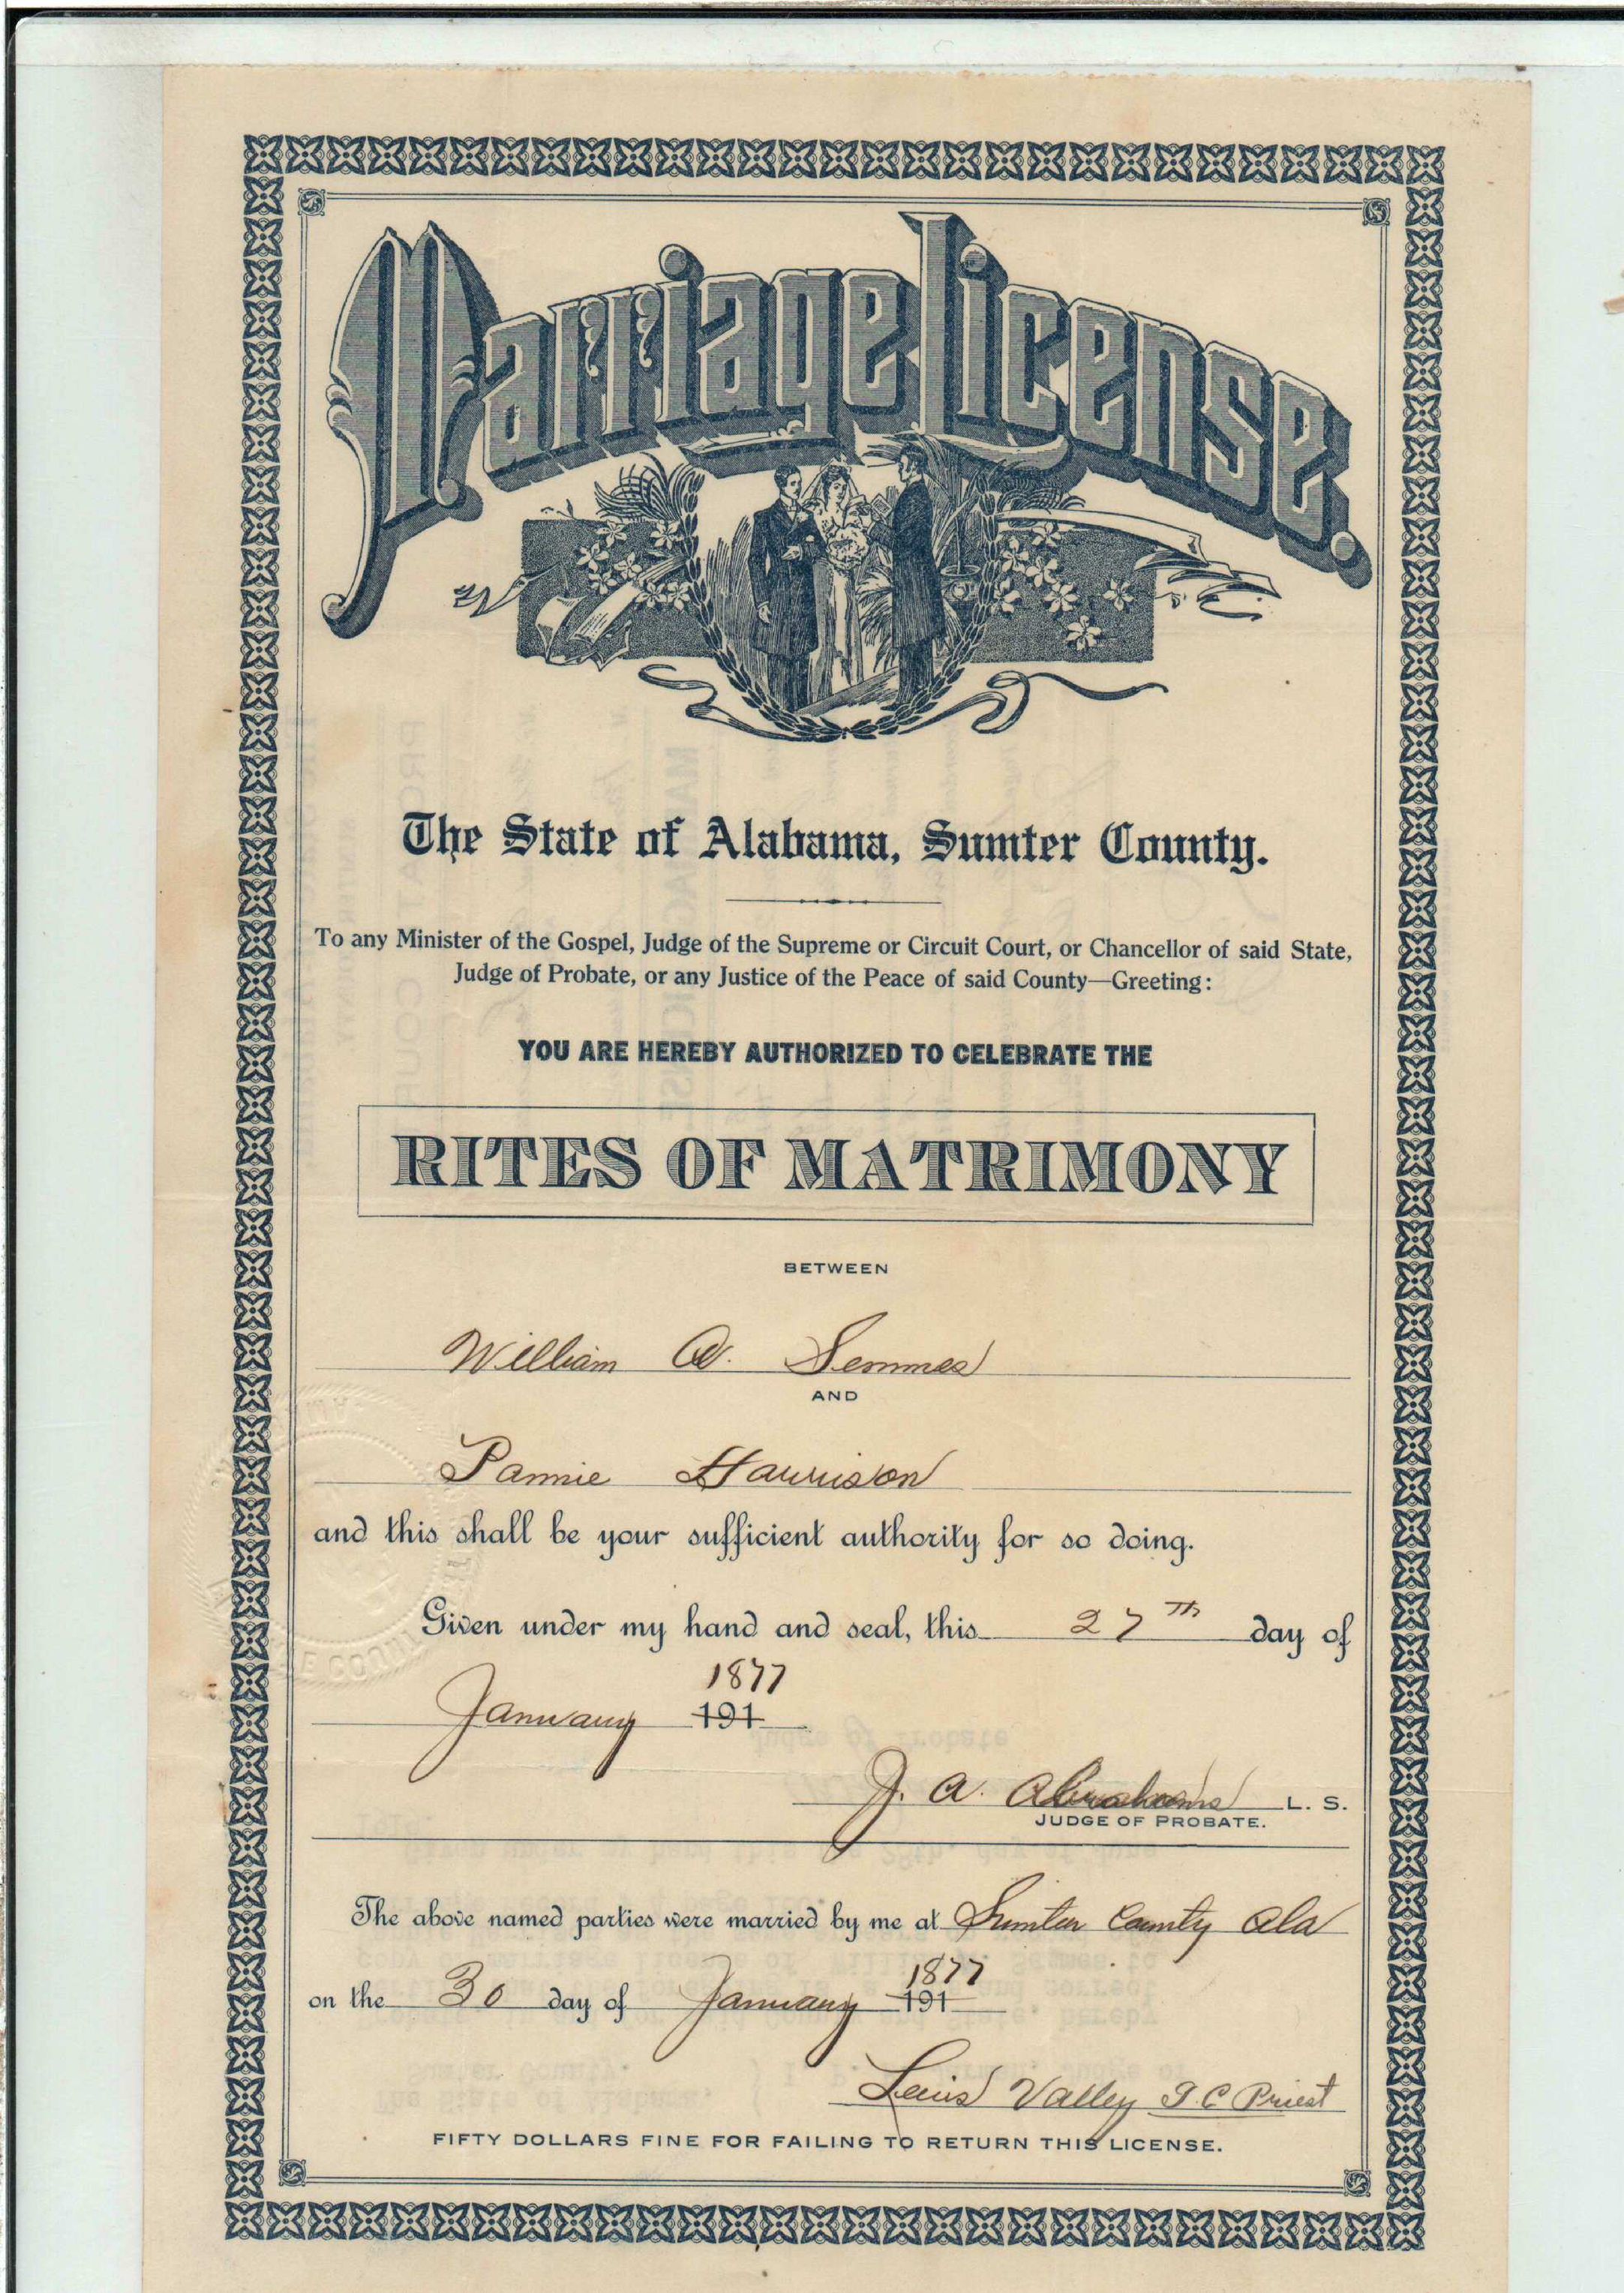 Marriage License.
The State of Alabama, Sumter County.
To any Minister of the Gospel, Judge of the Supreme or Circuit Court, or Chancellor of said State,
Judge of Probate, or any Justice of the Peace of said County—Greeting:
YOU ARE HEREBY AUTHORIZED TO CELEBRATE THE
RITES OF MATRIMONY
BETWEEN
William A. Semmes
AND
Pannie Harrison
and this shall be your sufficient authority for so doing.
Given under my hand and seal, this 27th day of
1877
January 191
J. A. Abrahams L. S.
JUDGE OF PROBATE.
The above named parties were married by me at Sumter County Ala
1877
on the 30 day of January 191
Valley Priest
FIFTY DOLLARS FINE FOR FAILING TO RETURN THIS LICENSE.